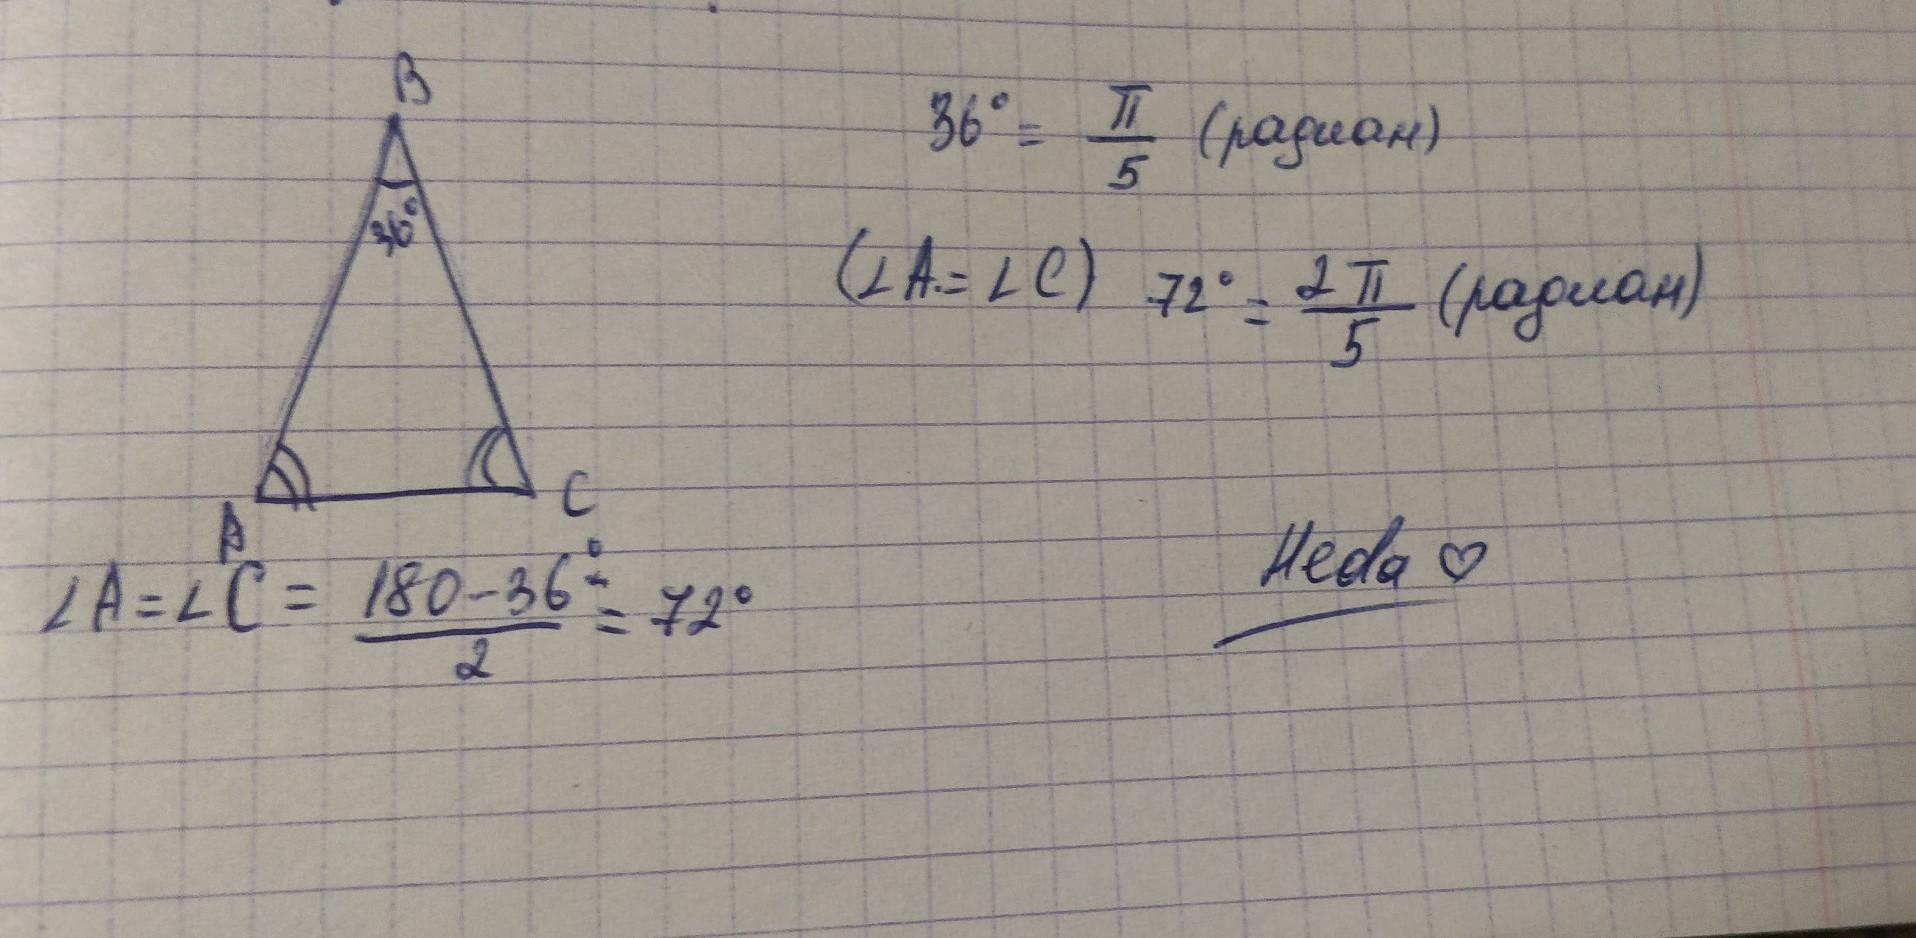 B
36°
A
C
∠A = ∠C = (180 - 36°)/2 = 72°
36° = π/5 (радиан)
(∠A = ∠C) 72° = 2π/5 (радиан)
Heda ♡